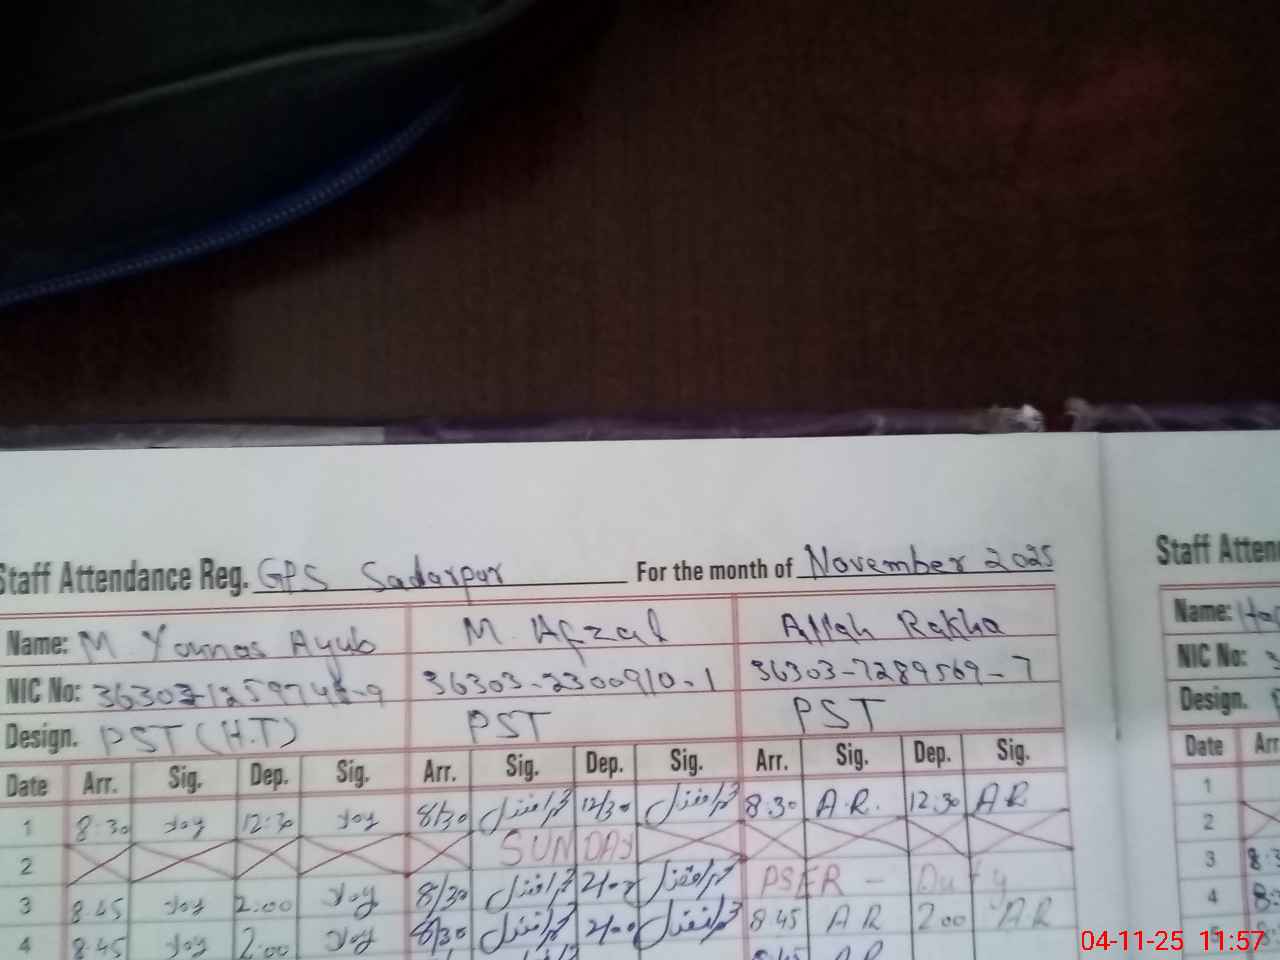 Staff Attendance Reg. GPS Sadarpur For the month of November 2025
Name: M Younas Ayub M. Afzal Allah Rakha
NIC No: 36303-2300910-1 36303-7289569-7
Design. PST (H.T) PST PST
Date Arr. Sig. Dep. Sig. Arr. Sig. Dep. Sig. Arr. Sig. Dep. Sig.
1 8:30 12:30 8/30 محمد افضل 12/30 محمد افضل 8:30 A.R. 12:30 AR
2 SUNDAY
3 8:45 2:00 8/30 محمد افضل محمد افضل PSER - Duty
4 8:45 2:00 8/30 محمد افضل 2/00 محمد افضل 8:45 AR 2:00 AR
8:45 AR
Staff Atten
Name:
NIC No: 3
Design.
Date Arr
1
2
3
4
5
04-11-25 11:57